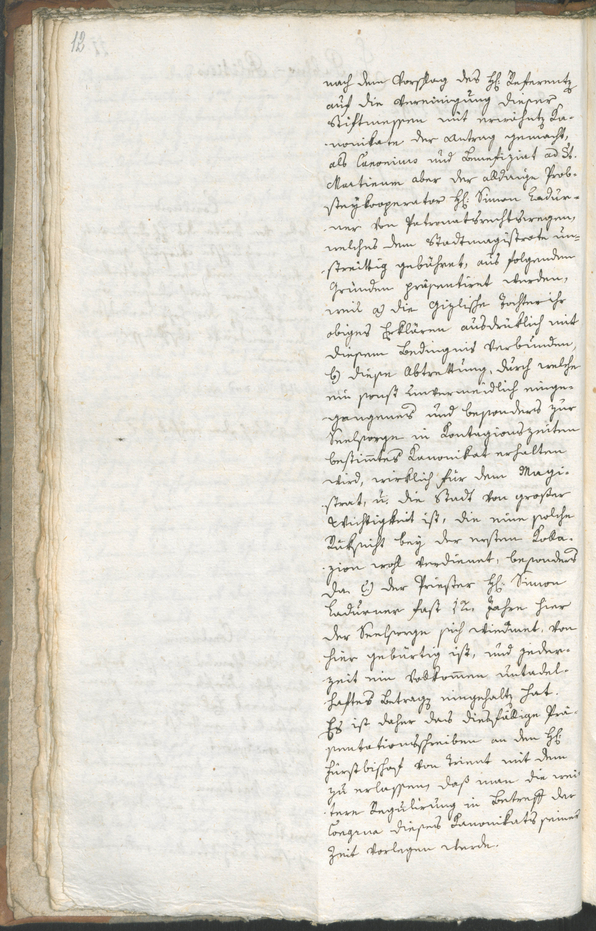 12
nach dem Vorschlag des H: Referentz
auf die Vereinigung dieser
Stiftmessen mit erwähntz Ka-
nonikate der Antrag gemacht,
als Canonimo und Benefiziat ad St.
Martinum aber der alldaige Prob-
steykooperator H: Simon Ladur-
ner von Patronatsrechtswegen,
welches dem Stadtmagistrate un-
streittig gebühret, aus folgenden
Gründen präsentiret werden,
weil a) die Gizlische Tochter ihr
obiges Erklären ausdrüklich mit
diesem Bedingnis verbunden,
b) diese Abtrettung, durch welche
ein sonst unvermeidlich einge-
gangenes und besonders zur
Seelsorge in Kontagionszeiten
bestimtes Kanonikat erhalten
wird, wirklich für dem Magi-
strat, u. die Stadt von großer
Wichtigkeit ist, die eine solche
Rüksicht bey der ersten Kola-
zion wohl verdienet, besonders
da c) der Priester H: Simon
Ladurner fast 12. Jahre hier
der Seelsorge sich widmet, von
hier gebürtig ist, und jeder-
zeit ein vollkomen untadel-
haftes Betragen eingehaltz hat.
Es ist daher das diesfällige Prä-
sentationsschreiben an den H:
Fürstbischof von Trient mit dem
zu erlassen, daß man die wei-
tere Regulirung in Betreff der
Congrua dieses Kanonikats seiner
Zeit vorlegen werde.